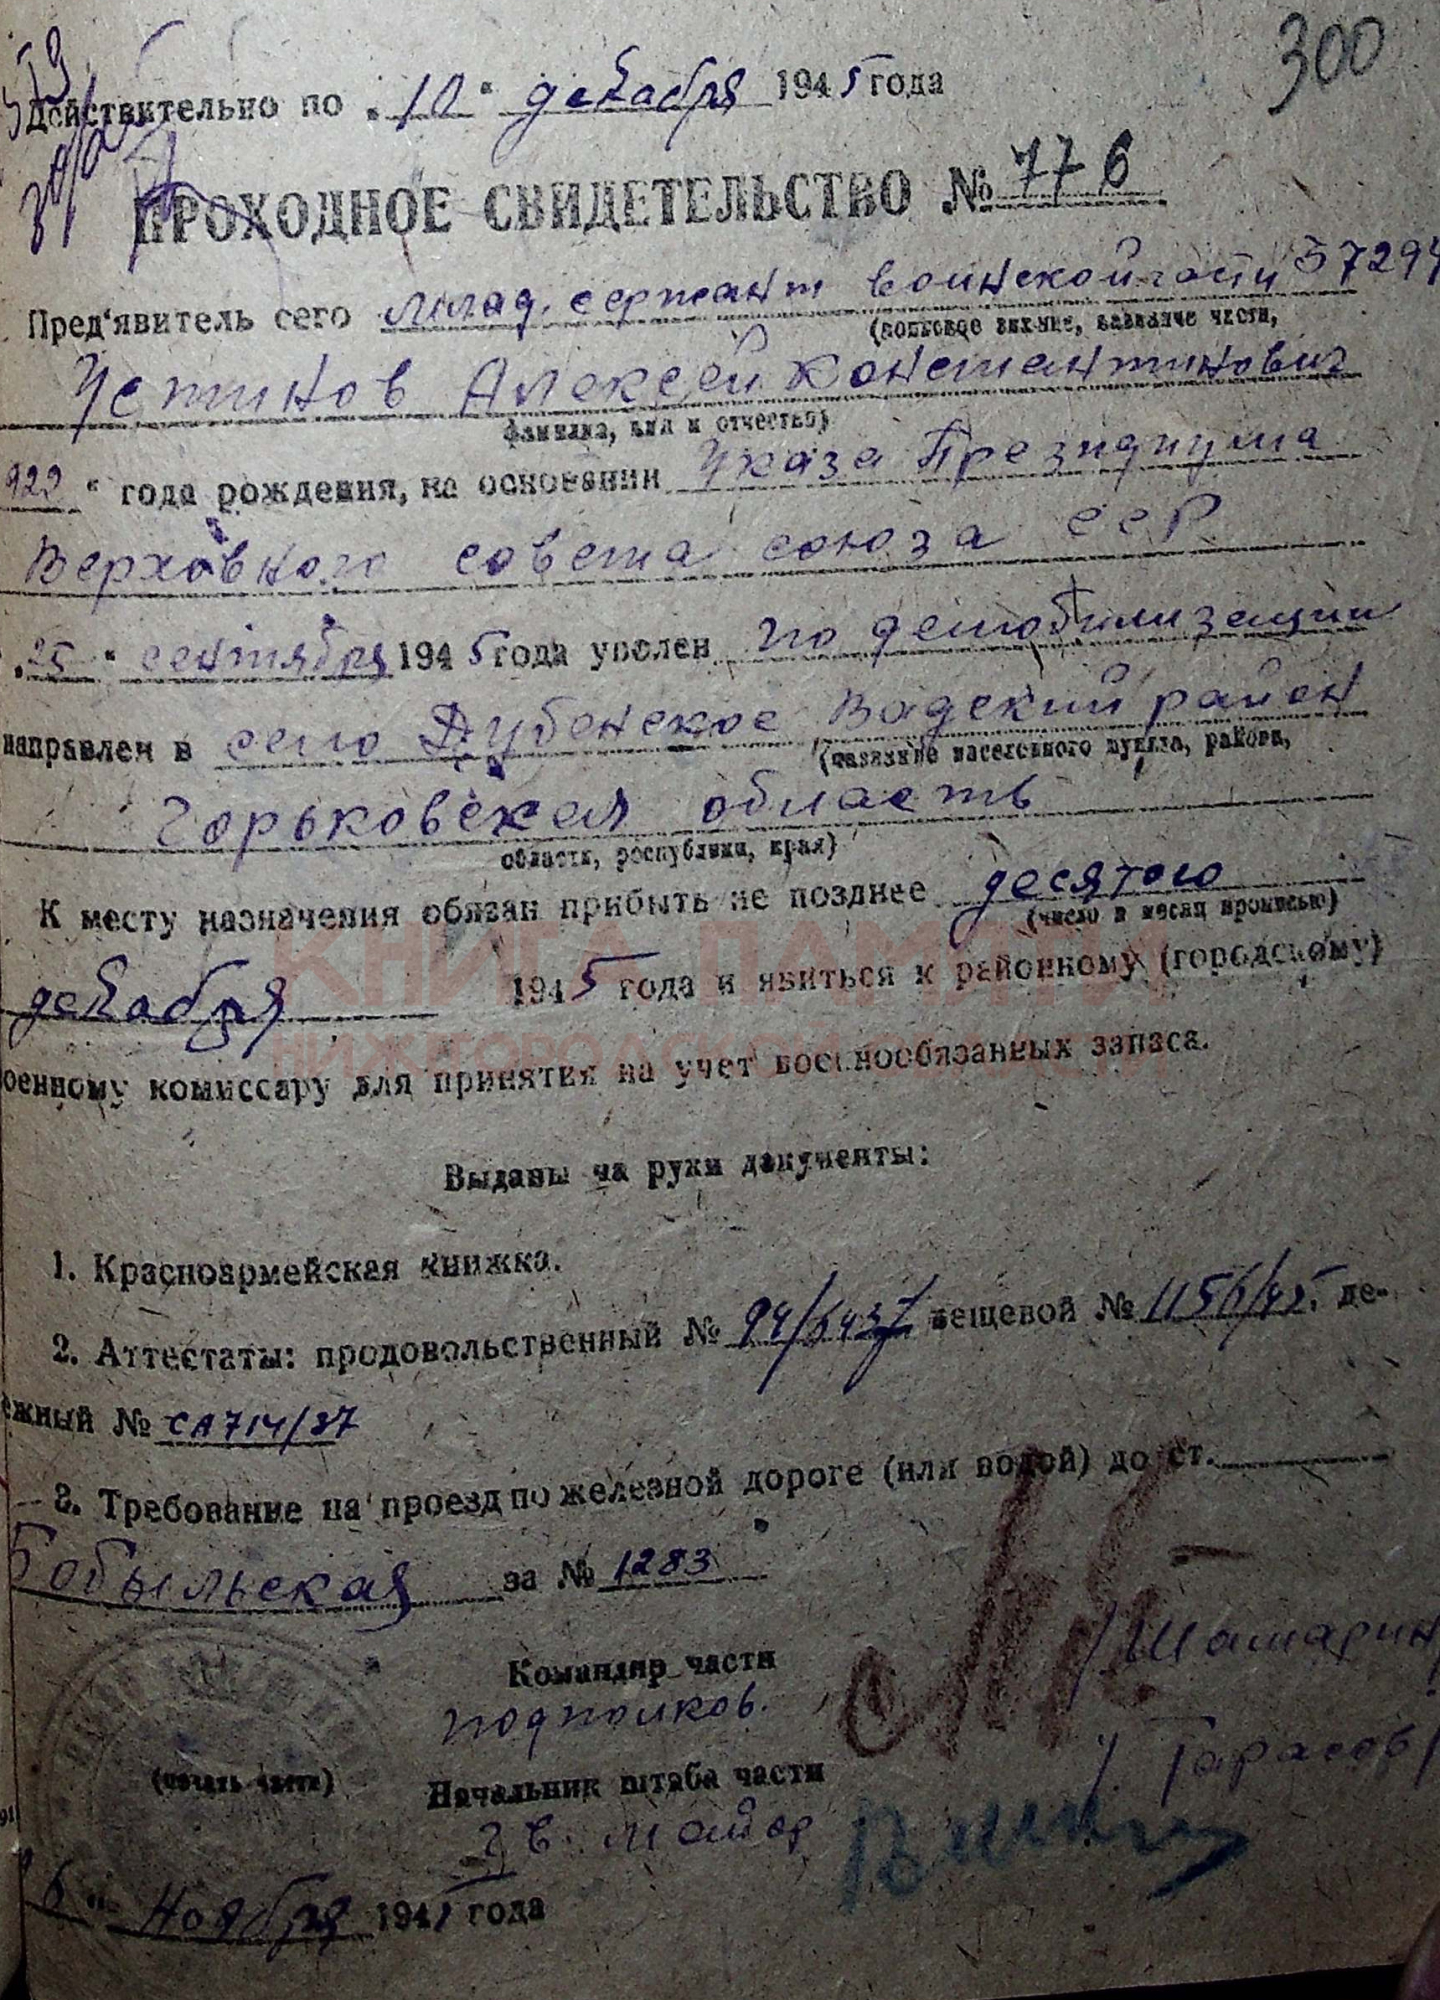 300
Действительно по „10“ декабря 1945 года
ПРОХОДНОЕ СВИДЕТЕЛЬСТВО № 776
Пред'явитель сего млад. сержант воинской части 57294
(воинское звание, название части,
Устинов Алексей Константинович
фамилия, имя и отчество)
922 “ года рождения, на основании Указа Президиума
Верховного совета союза ССР
„25“ сентября 1945 года уволен по демобилизации
направлен в село Дубенское, Вадский район
(название населенного пункта, района,
Горьковская область
области, республики, края)
К месту назначения обязан прибыть не позднее десятого
(число и месяц прописью)
декабря 1945 года и явиться к районному (городскому)
КНИГА ПАМЯТИ
НИЖЕГОРОДСКОЙ ОБЛАСТИ
оенному комиссару для принятия на учет военнообязанных запаса.
Выданы на руки документы:
1. Красноармейская книжка.
2. Аттестаты: продовольственный № 94/6437 вещевой № 1156/45, де-
ежный № СА714/37
3. Требование на проезд по железной дороге (или водой) до ст.
Бобыльская за № 1283
Командир части
подполков. /Шамарин
(печать части)
Начальник штаба части
гв. майор /Тарасов/
6 “ Ноября 1945 года